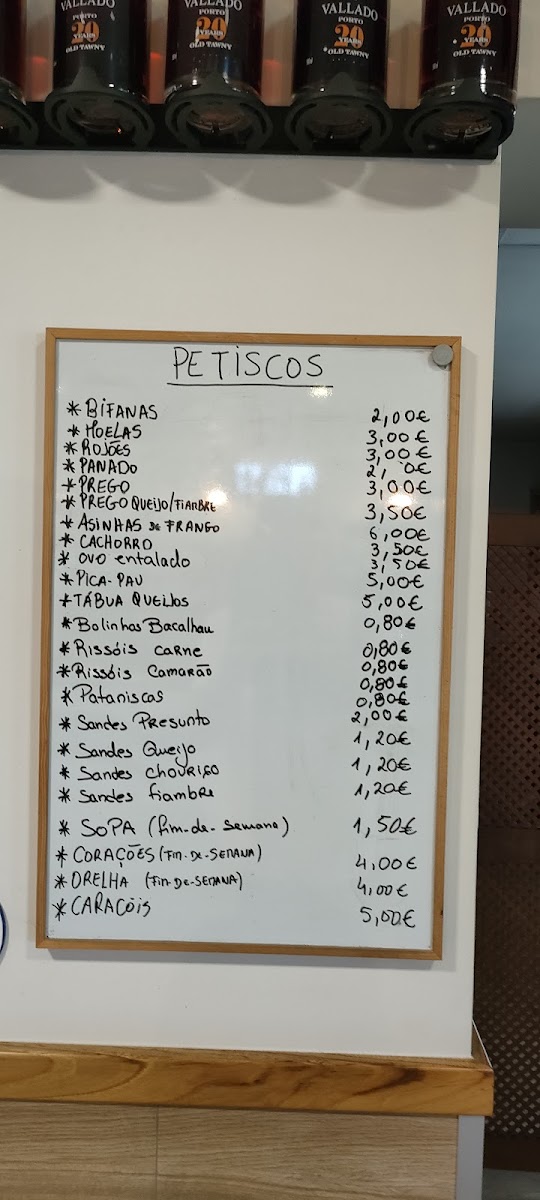 VALLADO
PORTO
20
YEARS
OLD TAWNY
VALLADO
PORTO
20
YEARS
OLD TAWNY
VALLADO
PORTO
20
YEARS
OLD TAWNY
VALLADO
PORTO
20
YEARS
OLD TAWNY
PETISCOS
* BIFANAS 2,00€
* MOELAS 3,00€
* ROJÕES 3,00€
* PANADO
* PREGO 3,00€
* PREGO QUEIJO/FIAMBRE 3,50€
* ASINHAS DE FRANGO 6,00€
* CACHORRO 3,50€
* OVO entalado 3,50€
* PICA-PAU 5,00€
* TÁBUA QUEIJOS 5,00€
* Bolinhas Bacalhau 0,80€
* Rissóis carne 0,80€
* Rissóis Camarão 0,80€
0,80€
* Pataniscas 0,80€
* Sandes Presunto 2,00€
* Sandes Queijo 1,20€
* Sandes chouriço 1,20€
* Sandes fiambre 1,20€
* SOPA (fim-de-semana) 1,50€
* CORAÇÕES (FIN-DE-SEMANA) 4,00€
* ORELHA (FIN-DE-SEMANA) 4,00€
* CARACÓIS 5,00€